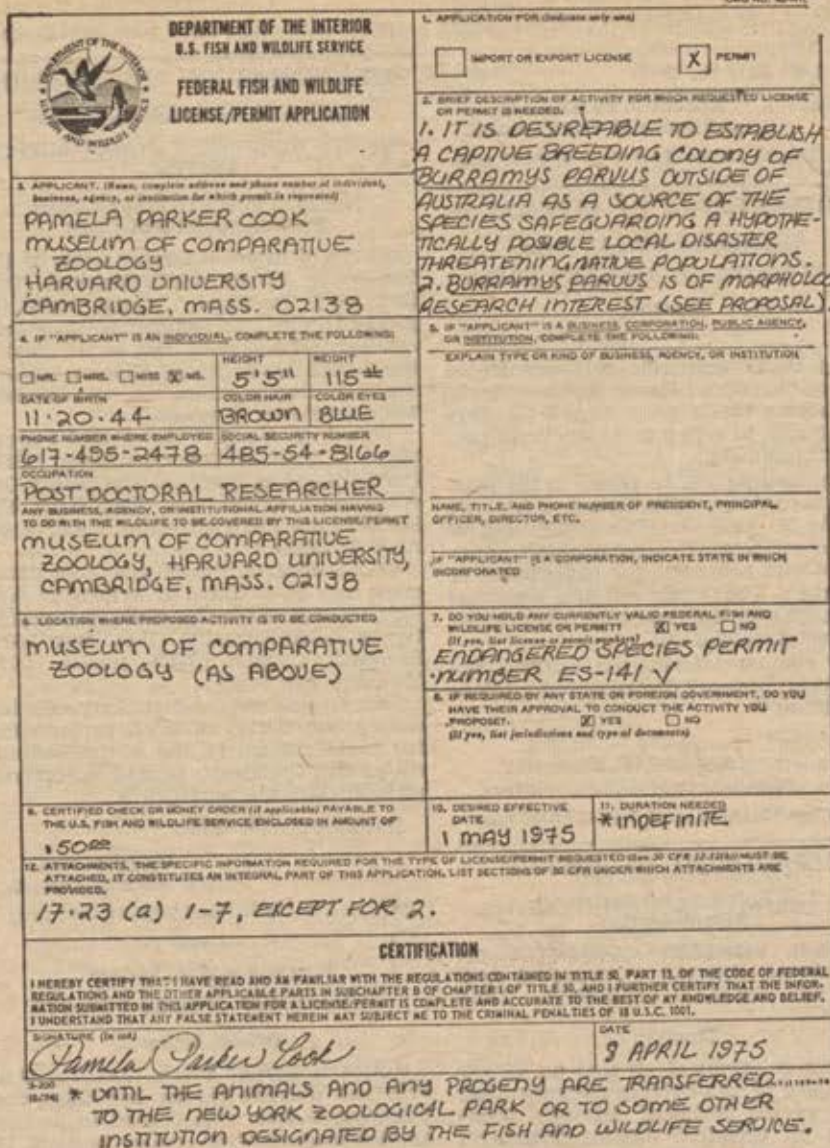 DEPARTMENT OF THE INTERIOR
U.S. FISH AND WILDLIFE SERVICE
FEDERAL FISH AND WILDLIFE
LICENSE/PERMIT APPLICATION
1. APPLICATION FOR (Indicate only one)
IMPORT OR EXPORT LICENSE
X PERMIT
2. BRIEF DESCRIPTION OF ACTIVITY FOR WHICH REQUESTED LICENSE
OR PERMIT IS NEEDED.
1. IT IS DESIREABLE TO ESTABLISH
A CAPTIVE BREEDING COLONY OF
BURRAMYS PARVUS OUTSIDE OF
AUSTRALIA AS A SOURCE OF THE
SPECIES SAFEGUARDING A HYPOTHE-
TICALLY POSIBLE LOCAL DISASTER
THREATENING NATIVE POPULATIONS.
2. BURRAMYS PARVUS IS OF MORPHOLOG
RESEARCH INTEREST (SEE PROPOSAL)
3. APPLICANT. (Name, complete address and phone number of individual,
business, agency, or institution for which permit is requested)
PAMELA PARKER COOK
MUSEUM OF COMPARATIVE
ZOOLOGY
HARVARD UNIVERSITY
CAMBRIDGE, MASS. 02138
4. IF "APPLICANT" IS AN INDIVIDUAL, COMPLETE THE FOLLOWING:
MR. MRS. MISS X MS.
HEIGHT
5'5"
WEIGHT
115#
DATE OF BIRTH
11·20·44
COLOR HAIR
BROWN
COLOR EYES
BLUE
PHONE NUMBER WHERE EMPLOYED
617-495-2478
SOCIAL SECURITY NUMBER
485-54-8166
OCCUPATION
POST DOCTORAL RESEARCHER
ANY BUSINESS, AGENCY, OR INSTITUTIONAL AFFILIATION HAVING
TO DO WITH THE WILDLIFE TO BE COVERED BY THIS LICENSE/PERMIT
MUSEUM OF COMPARATIVE
ZOOLOGY, HARVARD UNIVERSITY,
CAMBRIDGE, MASS. 02138
5. IF "APPLICANT" IS A BUSINESS, CORPORATION, PUBLIC AGENCY,
OR INSTITUTION, COMPLETE THE FOLLOWING:
EXPLAIN TYPE OR KIND OF BUSINESS, AGENCY, OR INSTITUTION
NAME, TITLE, AND PHONE NUMBER OF PRESIDENT, PRINCIPAL
OFFICER, DIRECTOR, ETC.
IF "APPLICANT" IS A CORPORATION, INDICATE STATE IN WHICH
INCORPORATED
6. LOCATION WHERE PROPOSED ACTIVITY IS TO BE CONDUCTED
MUSEUM OF COMPARATIVE
ZOOLOGY (AS ABOVE)
7. DO YOU HOLD ANY CURRENTLY VALID FEDERAL FISH AND
WILDLIFE LICENSE OR PERMIT? X YES NO
(If yes, list license or permit numbers)
ENDANGERED SPECIES PERMIT
NUMBER ES-141 √
8. IF REQUIRED BY ANY STATE OR FOREIGN GOVERNMENT, DO YOU
HAVE THEIR APPROVAL TO CONDUCT THE ACTIVITY YOU
PROPOSE? X YES NO
(If yes, list jurisdictions and type of documents)
9. CERTIFIED CHECK OR MONEY ORDER (if applicable) PAYABLE TO
THE U.S. FISH AND WILDLIFE SERVICE ENCLOSED IN AMOUNT OF
$50.00
10. DESIRED EFFECTIVE
DATE
1 MAY 1975
11. DURATION NEEDED
*INDEFINITE
12. ATTACHMENTS. THE SPECIFIC INFORMATION REQUIRED FOR THE TYPE OF LICENSE/PERMIT REQUESTED (See 50 CFR 13.12(b)) MUST BE
ATTACHED, IT CONSTITUTES AN INTEGRAL PART OF THIS APPLICATION. LIST SECTIONS OF 50 CFR UNDER WHICH ATTACHMENTS ARE
PROVIDED.
17·23 (a) 1-7, EXCEPT FOR 2.
CERTIFICATION
I HEREBY CERTIFY THAT I HAVE READ AND AM FAMILIAR WITH THE REGULATIONS CONTAINED IN TITLE 50, PART 13, OF THE CODE OF FEDERAL
REGULATIONS AND THE OTHER APPLICABLE PARTS IN SUBCHAPTER B OF CHAPTER I OF TITLE 50, AND I FURTHER CERTIFY THAT THE INFOR-
MATION SUBMITTED IN THIS APPLICATION FOR A LICENSE/PERMIT IS COMPLETE AND ACCURATE TO THE BEST OF MY KNOWLEDGE AND BELIEF.
I UNDERSTAND THAT ANY FALSE STATEMENT HEREIN MAY SUBJECT ME TO THE CRIMINAL PENALTIES OF 18 U.S.C. 1001.
SIGNATURE (In ink)
Pamela Parker Cook
DATE
8 APRIL 1975
3-200
* UNTIL THE ANIMALS AND ANY PROGENY ARE TRANSFERRED
TO THE NEW YORK ZOOLOGICAL PARK OR TO SOME OTHER
INSTITUTION DESIGNATED BY THE FISH AND WILDLIFE SERVICE.